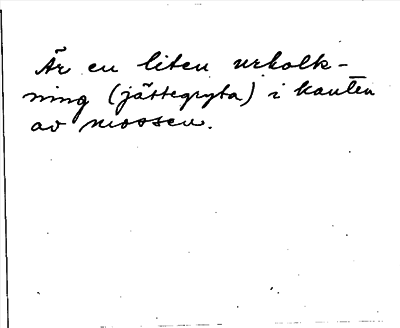 Är en liten urkolk-
ning (jättegryta) i kanten
av mossen.